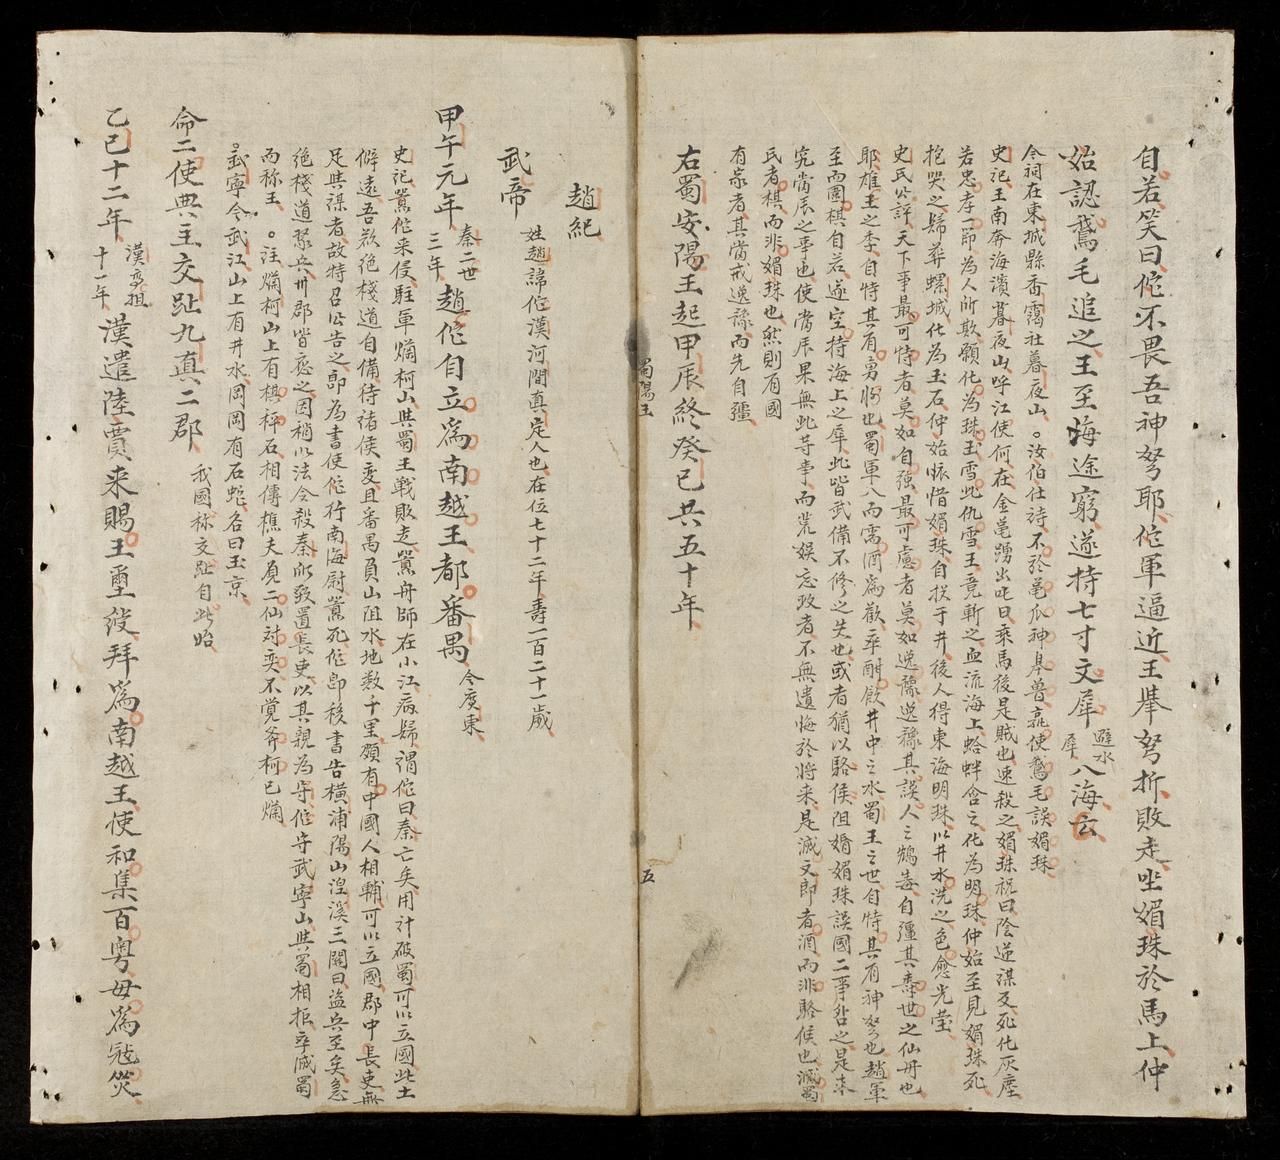 自若笑曰佗不畏吾神弩耶佗軍逼近王舉弩折敗走坐媚珠於馬上仲
始認鵞毛追之王至海途窮遂持七寸文犀避水犀入海去
今祠在東城縣香靄社暮夜山。汝伯仕詩不於黾瓜神鼻兽羸使鵞毛誤媚珠
史記王南奔海濱暮夜山呼江使何在金黾踴出叱曰乘馬後是賊也速殺之媚珠祝曰陰逆謀反死化灰塵
若忠孝一節為人所欺願化為珠玉雪此仇雪王竟斬之血流海上蛤蚌含之化為明珠仲始至見媚珠死
抱哭之歸葬螺城化為玉石仲始悵惜媚珠自投于井後人得東海明珠以井水洗之色愈光瑩
史氏公評天下事最可恃者莫如自强最可慮者莫如逸豫逸豫其誤人之鴆毒自彊其壽世之仙丹也
耶雄王之季自恃其有勇將也蜀軍八而需酒為歡率酣飲井中之水蜀王之世自恃其有神弩也趙軍
至而圍棋自若遂空持海上之犀此皆武備不修之失也或者猶以駱侯阻婚媚珠誤國二事咎之是未
究當辰之事也使當辰果無此等事而荒娱忘政者不無遺悔於将来是滅文郎者酒而非駱候也滅蜀
氏者棋而非媚珠也然則有國
有家者其當戒逸豫而先自彊
右蜀安陽王起甲辰終癸巳共五十年
蜀陽王
五
趙紀
武帝 姓趙諱佗漢河間真定人也在位七十二年壽一百二十一歲
甲午元年 秦二世三年 趙佗自立為南越王都番禺 今廣東
史記嚣佗来侵駐軍爛柯山與蜀王戰敗走嚣舟師在小江病婦谓佗曰秦亡矣用计破蜀可以立國此土
僻遠吾欲绝棧道自備待诸侯变且番禺負山阻水地数千里頗有中國人相輔可以立國郡中長吏無
足與謀者故特召公告之即為書使佗行南海尉嚣死佗即移書告横浦陽山湟溪三關曰盗兵至矣急
绝棧道聚兵州郡皆應之因稍以法令殺秦所致置長吏以其親為守佗守武寧山與蜀相拒卒滅蜀
而称王。注爛柯山上有棋枰石相傳樵夫見二仙对奕不覚斧柯已爛
。武寧今武江山上有井水岡岡有石蛇名曰玉京
命二使典主交趾九真二郡 我國称交趾自此始
乙巳十二年 漢高祖十一年 漢遣陸賈来賜王璽绶拜為南越王使和集百粤毋為冦災